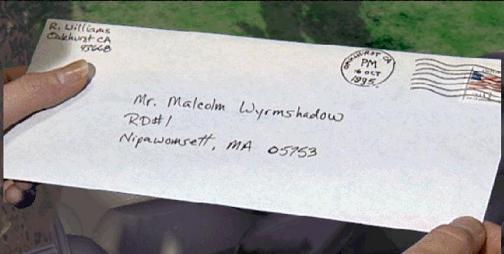 R. Williams
Oakhurst CA
93668
OAKHURST CA
PM
16 OCT
1995
Mr. Malcolm Wyrmshadow
RD#1
Nipawomsett, MA 05753